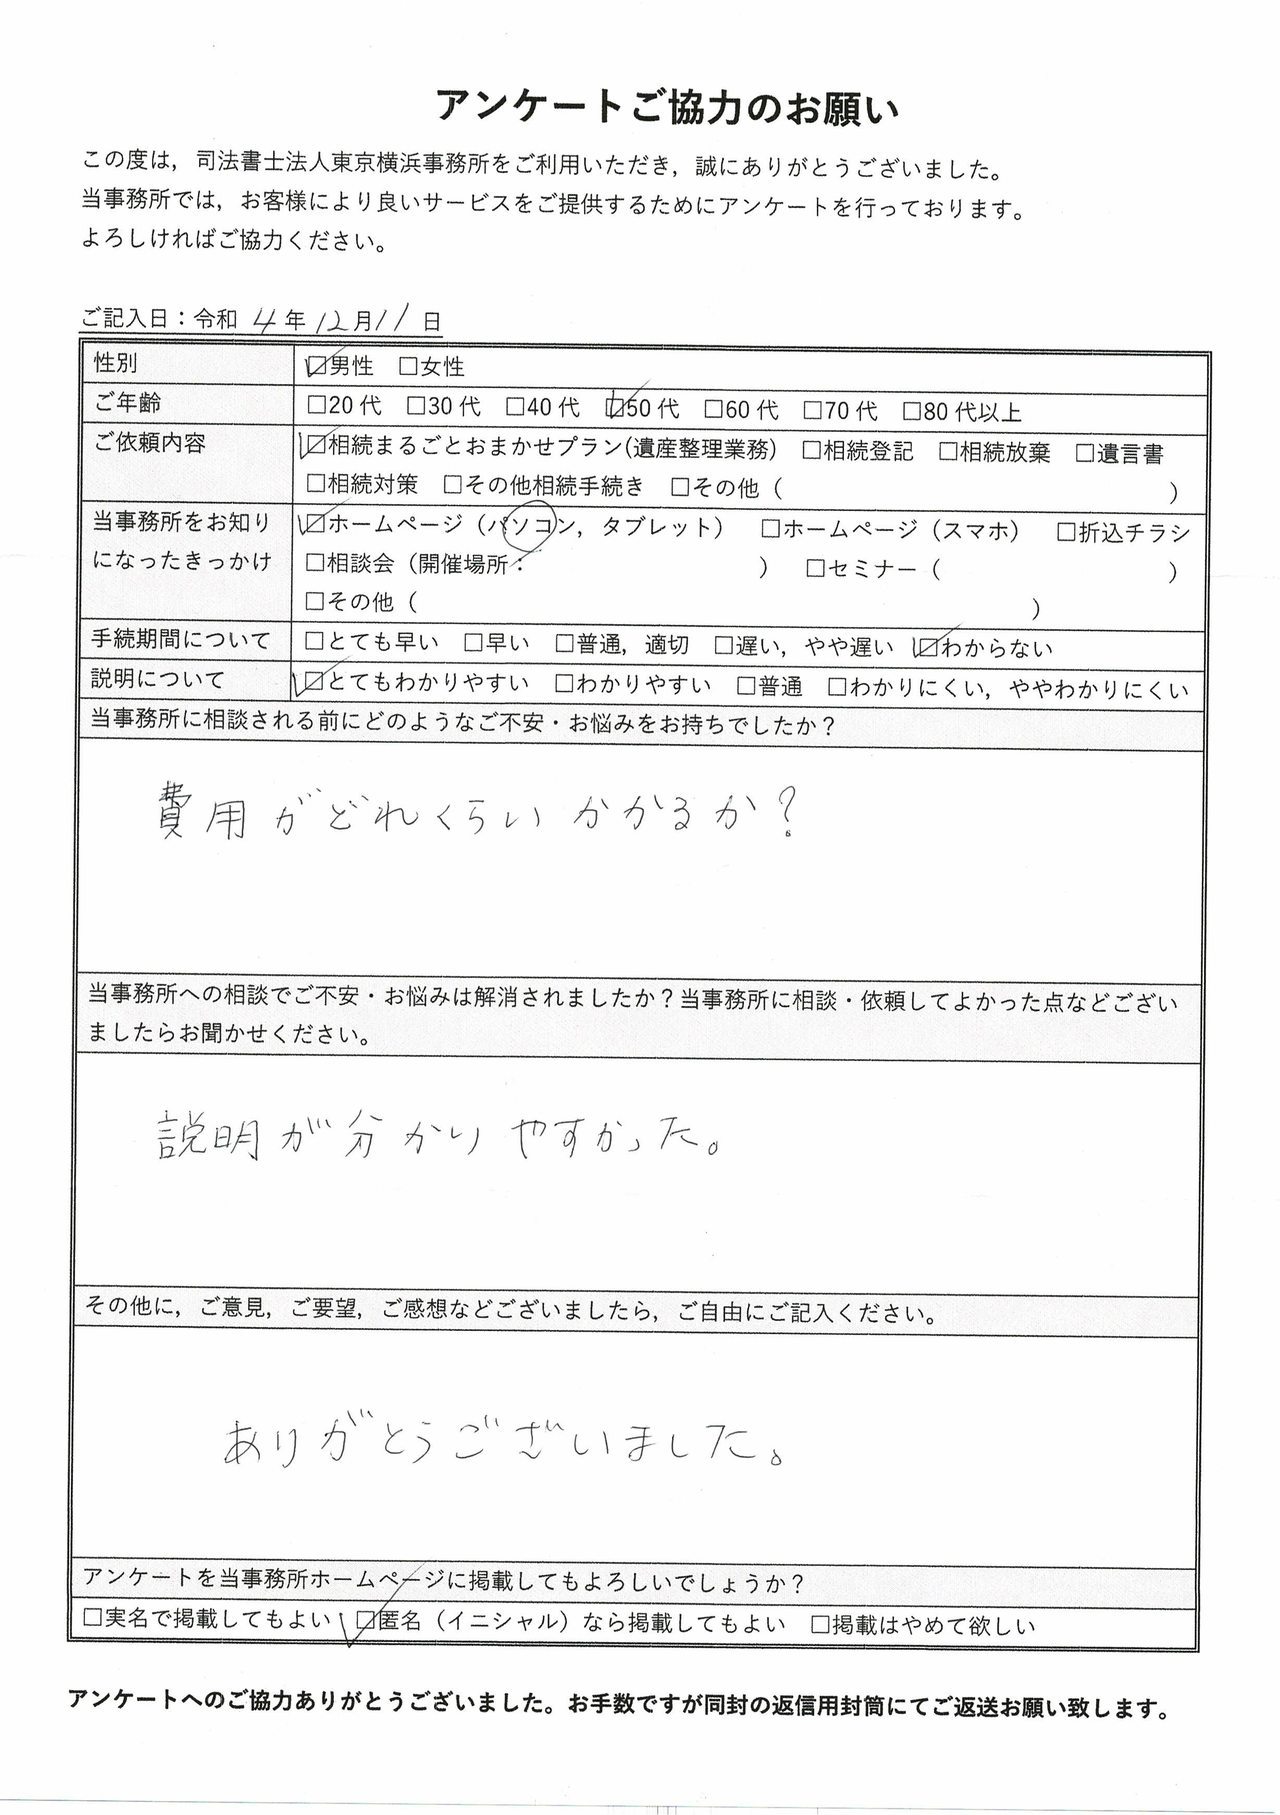 アンケートご協力のお願い
この度は，司法書士法人東京横浜事務所をご利用いただき，誠にありがとうございました。
当事務所では，お客様により良いサービスをご提供するためにアンケートを行っております。
よろしければご協力ください。
ご記入日：令和 4 年 12 月 11 日
性別 ☑男性 □女性
ご年齢 □20 代 □30 代 □40 代 ☑50 代 □60 代 □70 代 □80 代以上
ご依頼内容 ☑相続まるごとおまかせプラン(遺産整理業務) □相続登記 □相続放棄 □遺言書
□相続対策 □その他相続手続き □その他（ ）
当事務所をお知り ☑ホームページ（パソコン，タブレット） □ホームページ（スマホ） □折込チラシ
になったきっかけ □相談会（開催場所： ） □セミナー（ ）
□その他（ ）
手続期間について □とても早い □早い □普通，適切 □遅い，やや遅い ☑わからない
説明について ☑とてもわかりやすい □わかりやすい □普通 □わかりにくい，ややわかりにくい
当事務所に相談される前にどのようなご不安・お悩みをお持ちでしたか？
費用がどれくらいかかるか？
当事務所への相談でご不安・お悩みは解消されましたか？当事務所に相談・依頼してよかった点などござい
ましたらお聞かせください。
説明が分かりやすかった。
その他に，ご意見，ご要望，ご感想などございましたら，ご自由にご記入ください。
ありがとうございました。
アンケートを当事務所ホームページに掲載してもよろしいでしょうか？
□実名で掲載してもよい ☑匿名（イニシャル）なら掲載してもよい □掲載はやめて欲しい
アンケートへのご協力ありがとうございました。お手数ですが同封の返信用封筒にてご返送お願い致します。